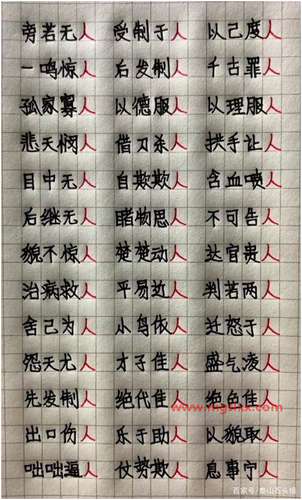 旁若无人 受制于人 以己度人
一鸣惊人 后发制人 千古罪人
孤家寡人 以德服人 以理服人
悲天悯人 借刀杀人 拱手让人
目中无人 自欺欺人 含血喷人
后继无人 睹物思人 不可告人
貌不惊人 楚楚动人 达官贵人
治病救人 平易近人 判若两人
舍己为人 小鸟依人 迁怒于人
怨天尤人 才子佳人 盛气凌人
先发制人 绝代佳人 绝色佳人
出口伤人 乐于助人 以貌取人
咄咄逼人 仗势欺人 息事宁人
百家号/泰山石头娃